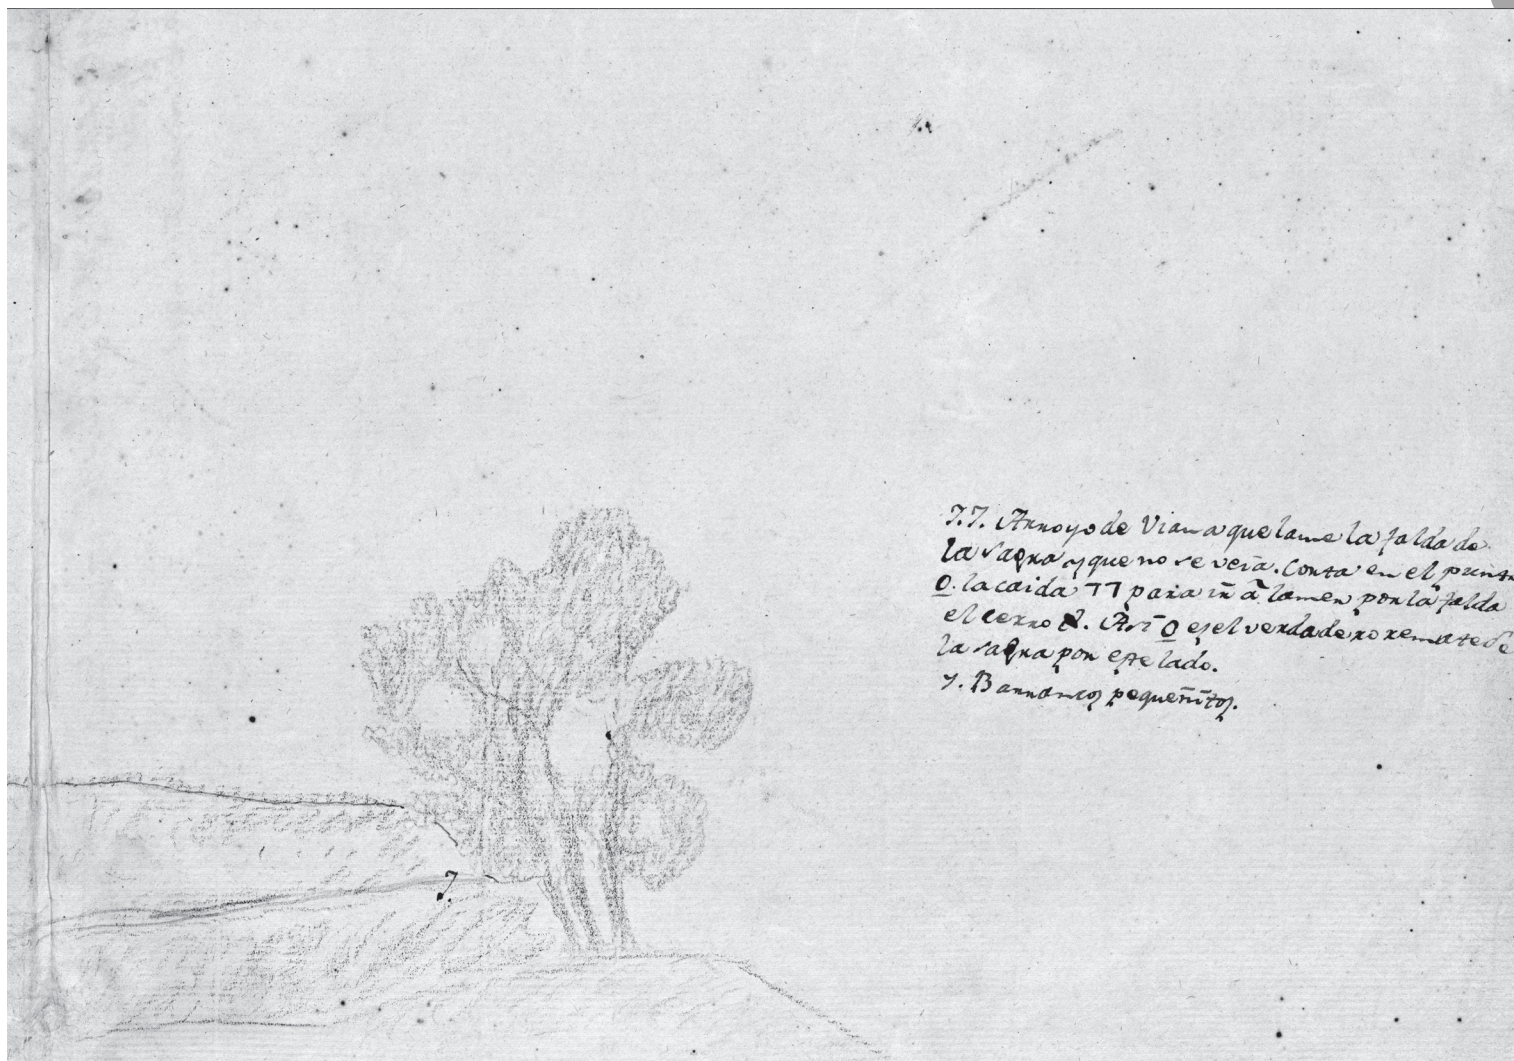 7.7. Arroyo de Viana que lame la falda de
la Sagra y que no se veia. Corta en el punto
O. la caida 77 para iñ à lamer por la falda
el cerro . Asi O es el verdadero remate de
la Sagra por este lado.
y. Barrancos pequeñitos.
7.